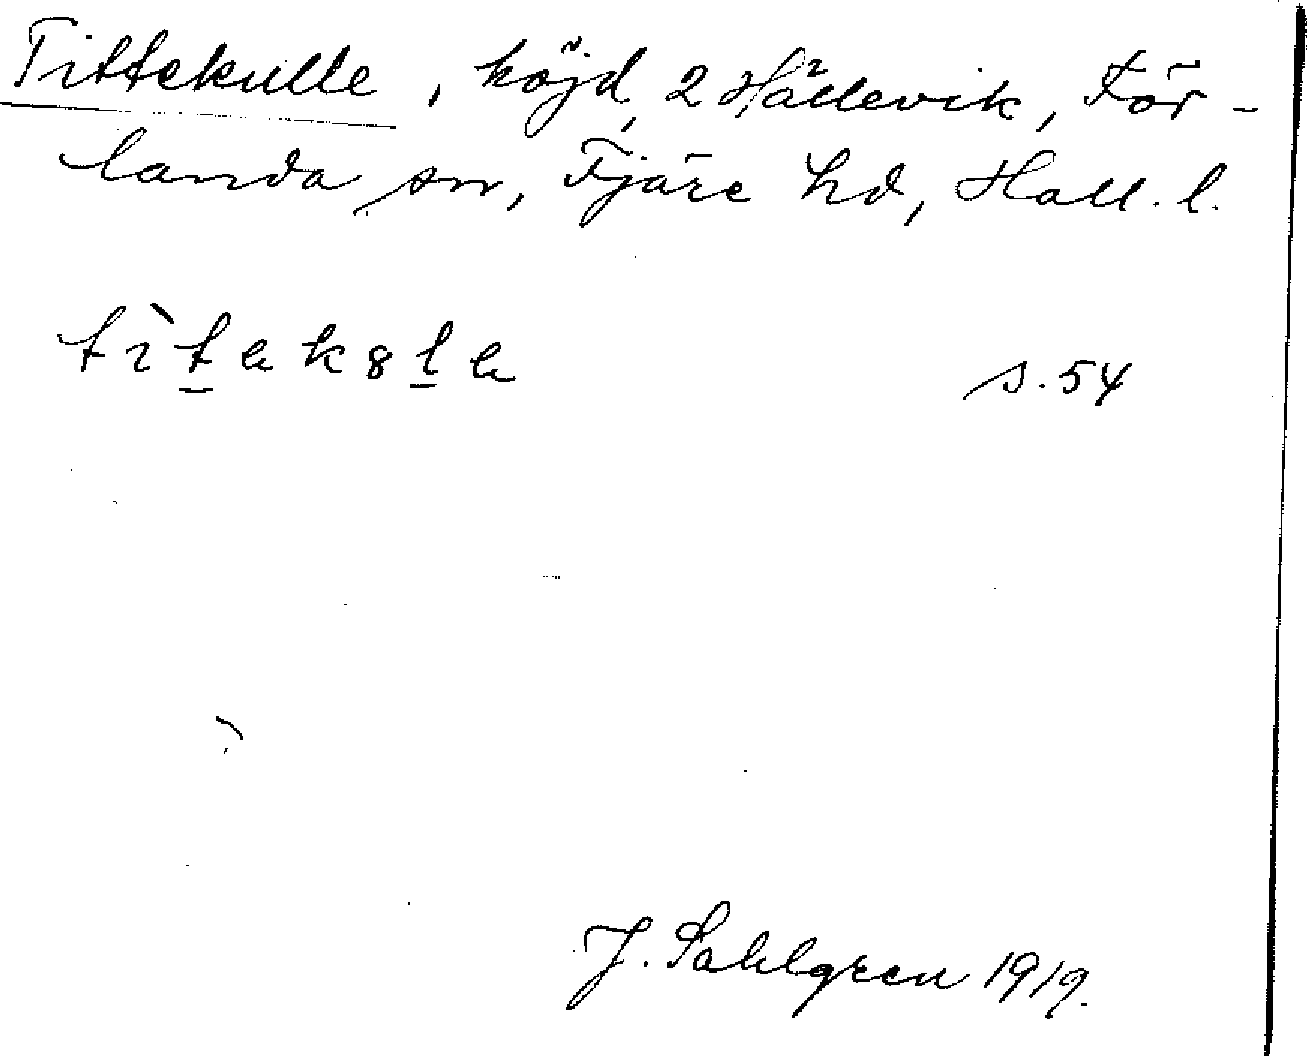 Tittekulle, höjd, 2 Hällevik, För-
landa sn, Fjäre hd, Hall. l.
s. 54
J. Sahlgren 1919.